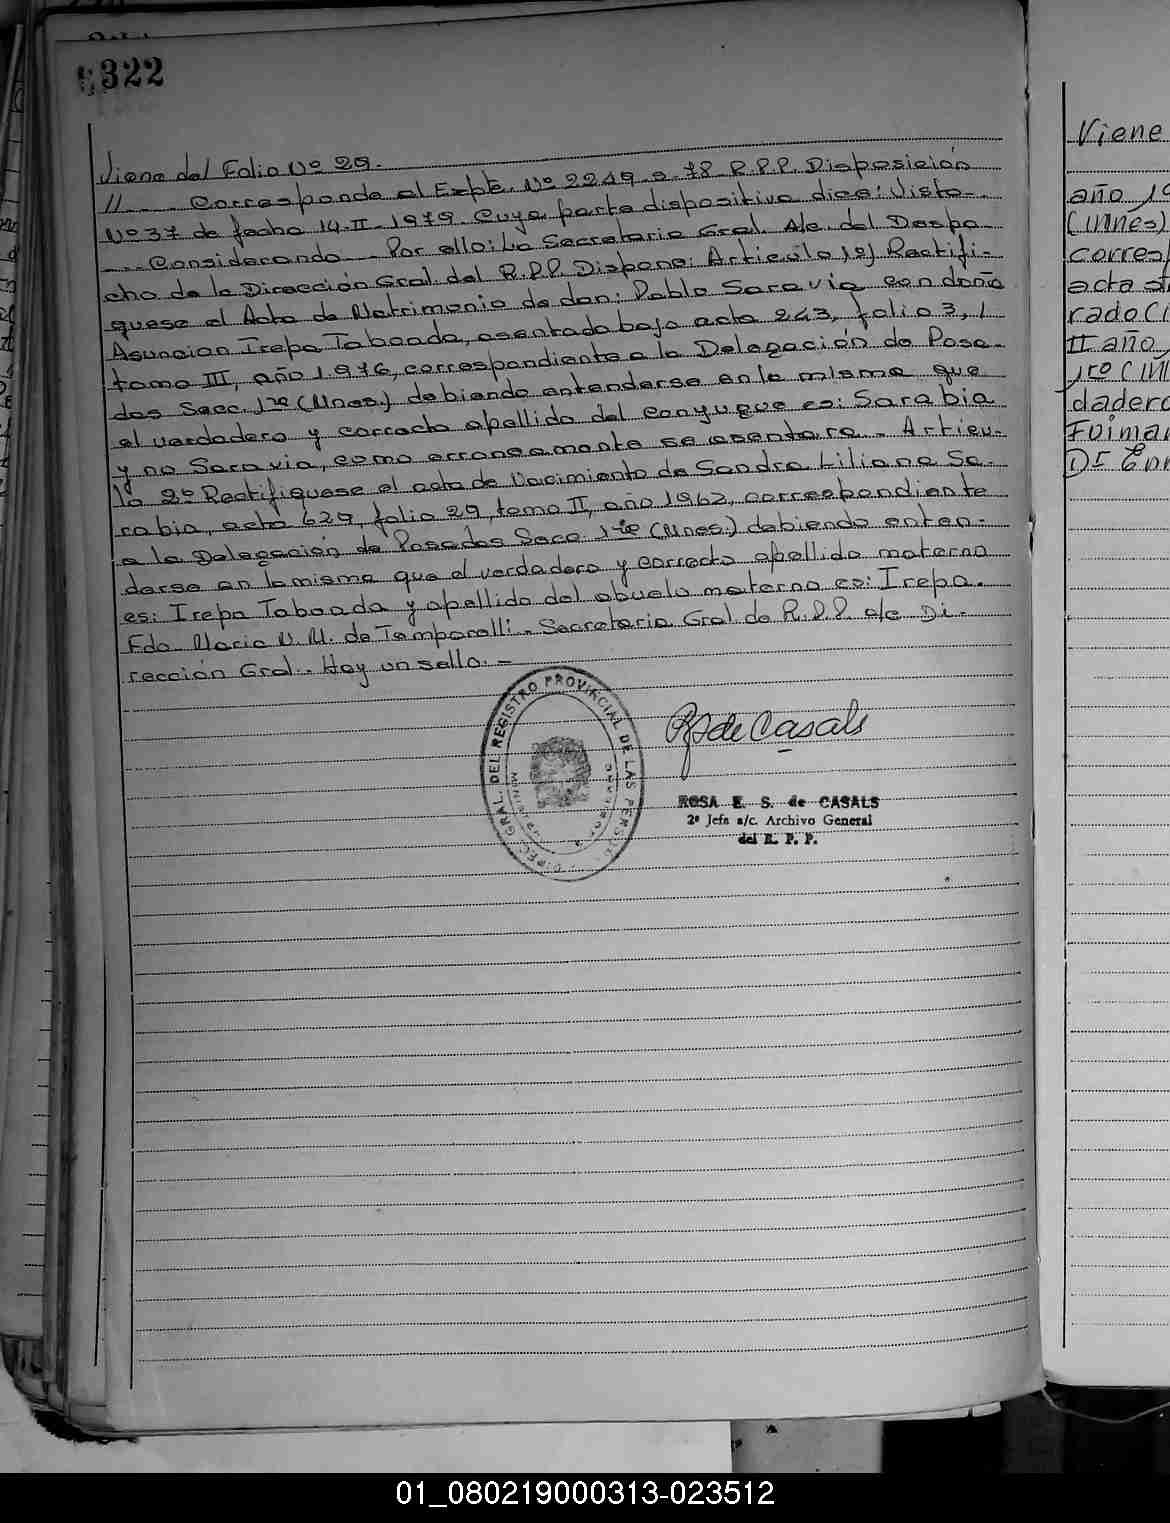 322
Viene del Folio Nº 29.
//... Corresponde al Expte. Nº 2249-s-78-R.P.P. Disposición
Nº 37 de fecha 14-II-1979. Cuya parte dispositiva dice: Visto-.
... Considerando - Por ello: La Secretaria Gral. A/c. del Despa-
cho de la Dirección Gral. del R.P.P. Dispone: Articulo 1º) Rectifi-
quese el Acta de Matrimonio de don: Pablo Saravia con doña
Asuncion Irepa Taboada, asentada bajo acta 243, folio 3, /
tomo III, año 1.976, correspondiente a la Delegación de Posa-
das Secc. 1ra (Mnes.) debiendo entenderse en la misma que
el verdadero y correcto apellido del conyugue es: Sarabia
y no Saravia, como erroneamente se asentara.- Articu-
lo 2º Rectifiquese el acta de Nacimiento de Sandra Liliana Sa-
rabia, acta 629, folio 29, tomo II, año 1962, correspondiente
a la Delegación de Posadas Secc. 1ra (Mnes.) debiendo enten-
derse en la misma que el verdadero y correcto apellido materno
es: Irepa Taboada y apellido del abuelo materno es: Irepa.
Fdo. Maria N. M. de Temporelli. Secretaria Gral. de R.P.P. a/c Di-
rección Gral.- Hay un sello.-
DIREC. GRAL. DEL REGISTRO PROVINCIAL DE LAS PERSONAS
de Casals
ROSA E. S. de CASALS
2ª Jefa a/c. Archivo General
del R. P. P.
Viene
año 19
(Mnes)
corres
acta
rado Ci
II año
1ro (Mn
dadero
01_080219000313-023512